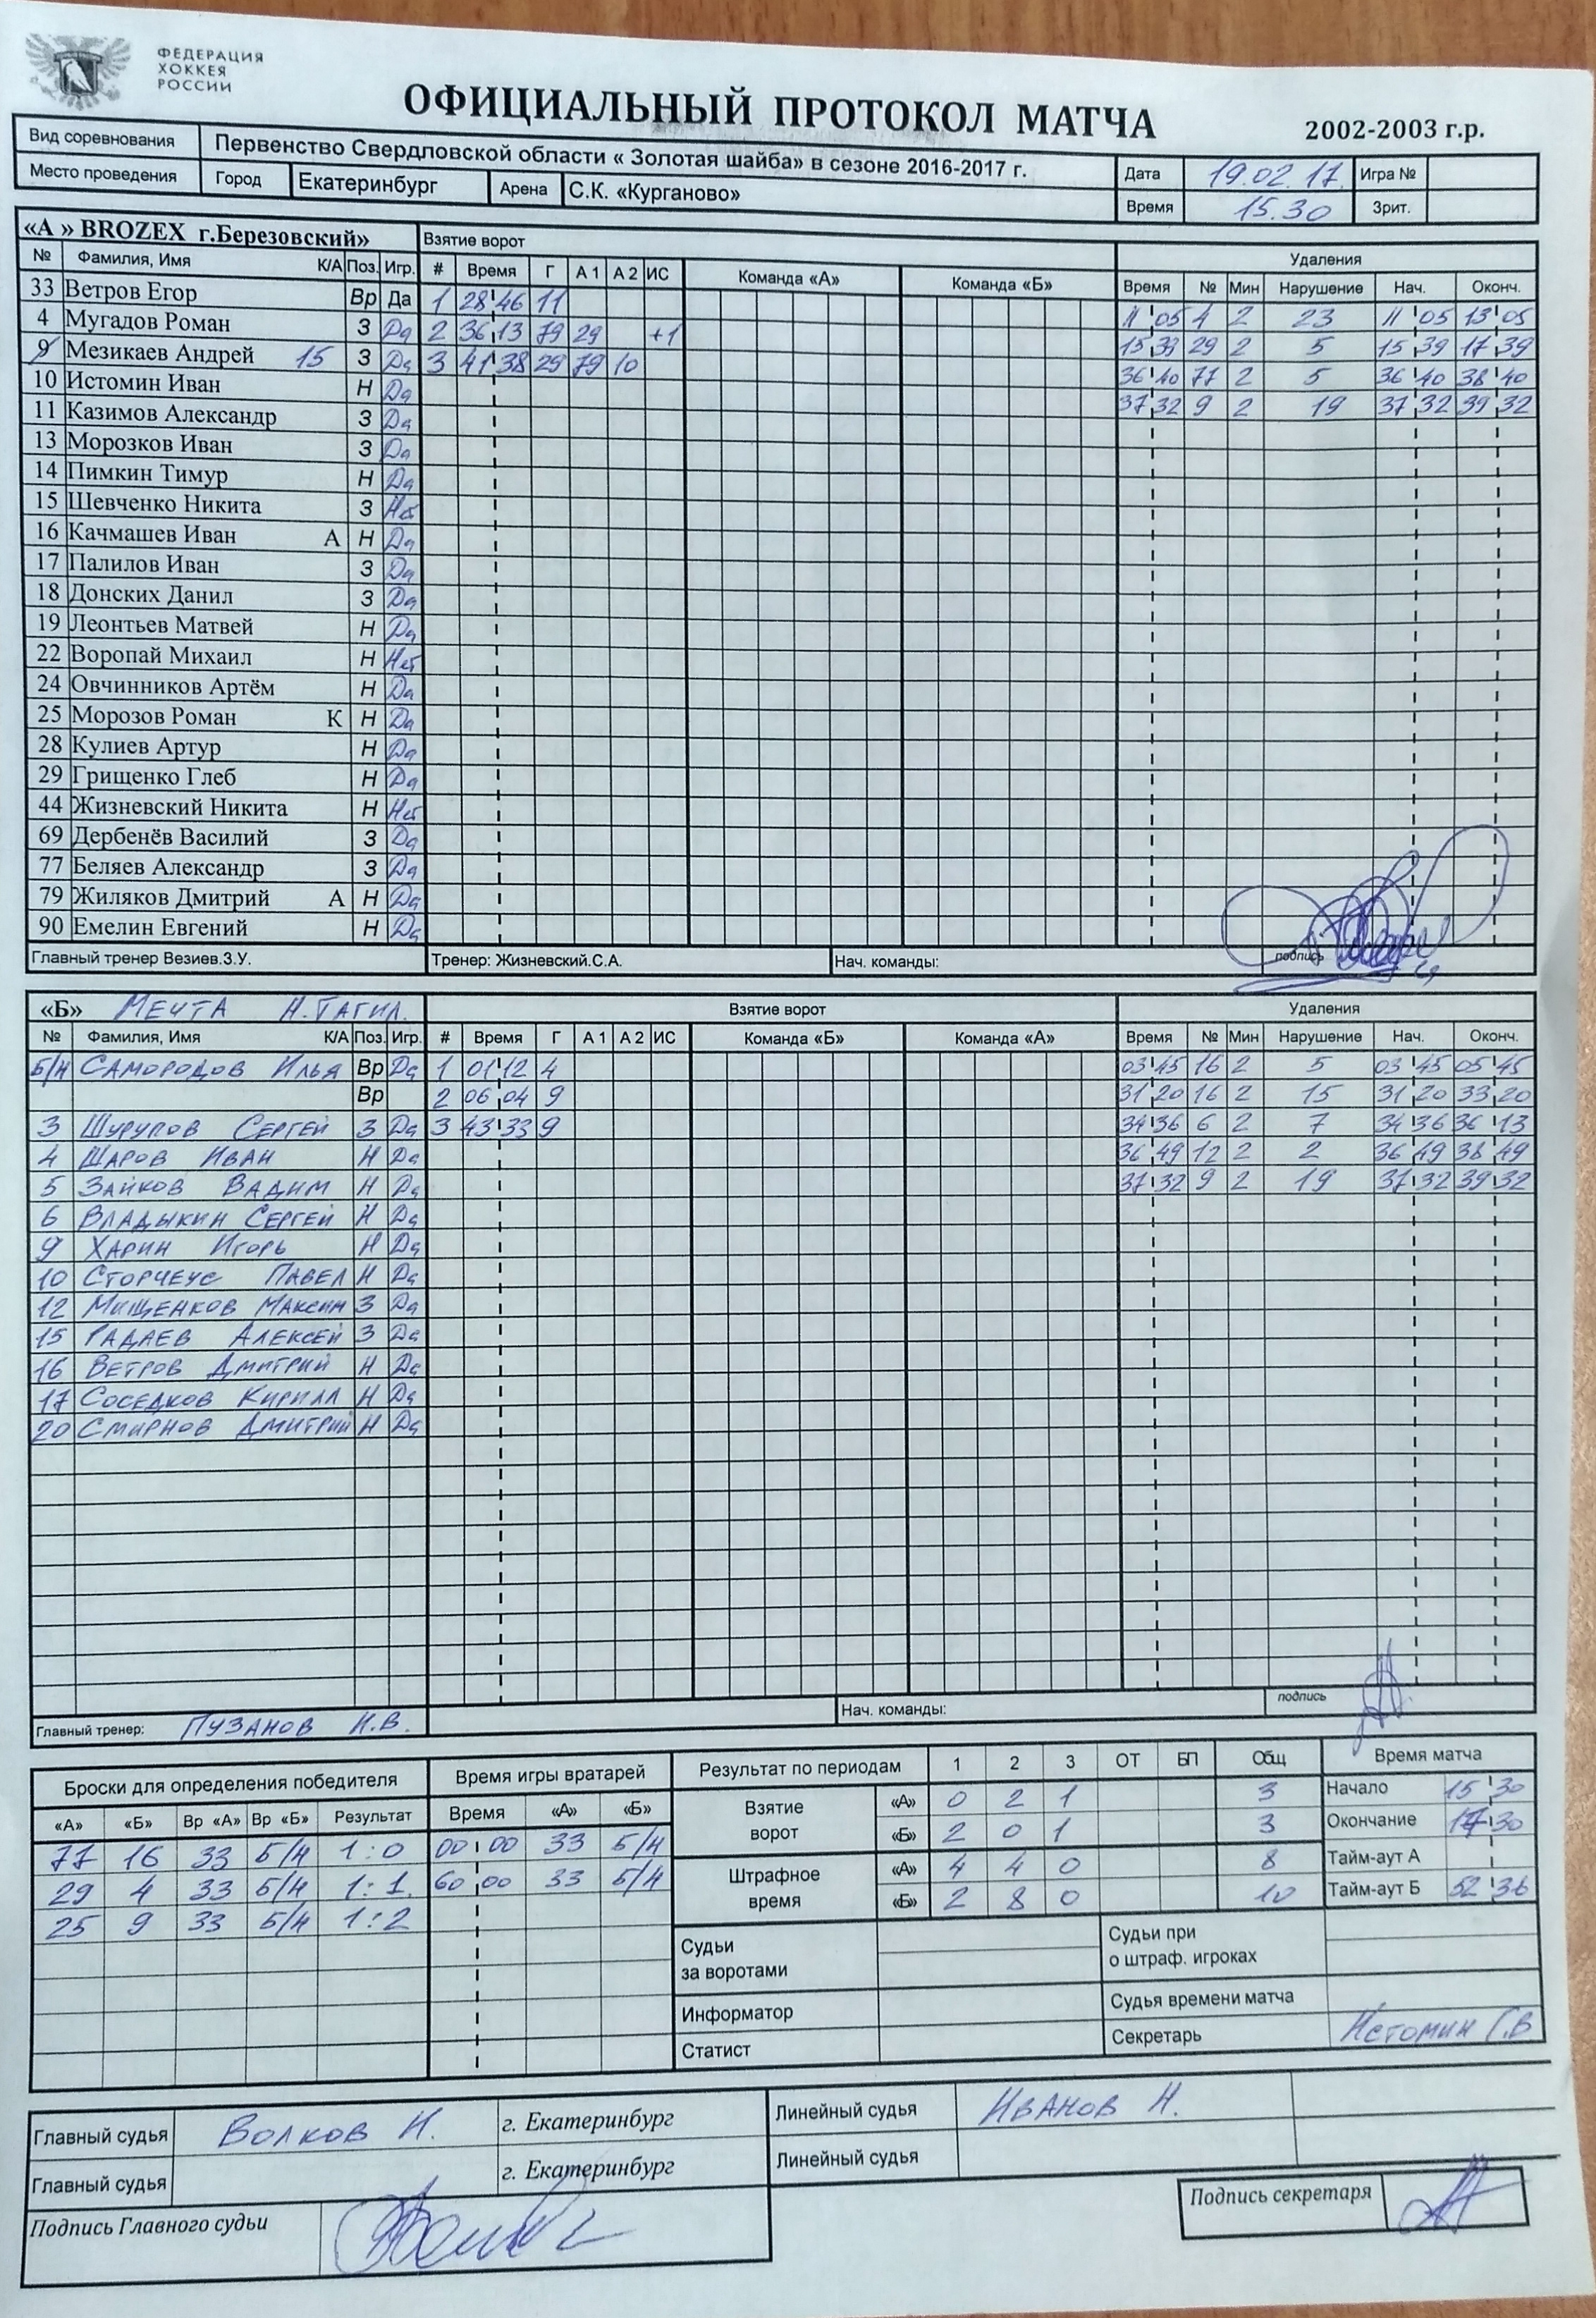 ФЕДЕРАЦИЯ
ХОККЕЯ
РОССИИ
ОФИЦИАЛЬНЫЙ ПРОТОКОЛ МАТЧА 2002-2003 г.р.
Вид соревнования Первенство Свердловской области « Золотая шайба» в сезоне 2016-2017 г. Дата 19.02.17. Игра №
Место проведения Город Екатеринбург Арена С.К. «Курганово» Время 15.30 Зрит.
«А » BROZEX г.Березовский» Взятие ворот Удаления
№ Фамилия, Имя К/А Поз. Игр. # Время Г А 1 А 2 ИС Команда «А» Команда «Б» Время № Мин Нарушение Нач. Оконч.
33 Ветров Егор Вр Да 1 28 46 11 11 05 4 2 23 11 05 13 05
4 Мугадов Роман З Да 2 36 13 79 29 +1 15 39 29 2 5 15 39 17 39
9 Мезикаев Андрей 15 З Да 3 41 38 29 79 10 36 40 77 2 5 36 40 38 40
10 Истомин Иван Н Да 37 32 9 2 19 37 32 39 32
11 Казимов Александр З Да
13 Морозков Иван З Да
14 Пимкин Тимур Н Да
15 Шевченко Никита З Нет
16 Качмашев Иван А Н Да
17 Палилов Иван З Да
18 Донских Данил З Да
19 Леонтьев Матвей Н Да
22 Воропай Михаил Н Нет
24 Овчинников Артём Н Да
25 Морозов Роман К Н Да
28 Кулиев Артур Н Да
29 Грищенко Глеб Н Да
44 Жизневский Никита Н Нет
69 Дербенёв Василий З Да
77 Беляев Александр З Да
79 Жиляков Дмитрий А Н Да
90 Емелин Евгений Н Да
Главный тренер Везиев.З.У. Тренер: Жизневский.С.А. Нач. команды: подпись
«Б» МЕЧТА Н.ТАГИЛ. Взятие ворот Удаления
№ Фамилия, Имя К/А Поз. Игр. # Время Г А 1 А 2 ИС Команда «Б» Команда «А» Время № Мин Нарушение Нач. Оконч.
Б/Н САМОРОДОВ ИЛЬЯ Вр Да 1 01 12 4 03 45 16 2 5 03 45 05 45
Вр 2 06 04 9 31 20 16 2 15 31 20 33 20
3 ШУРУПОВ СЕРГЕЙ З Да 3 43 33 9 34 36 6 2 7 34 36 36 13
4 ШАРОВ ИВАН Н Да 36 49 12 2 2 36 49 38 49
5 ЗАЙКОВ ВАДИМ Н Да 37 32 9 2 19 37 32 39 32
6 ВЛАДЫКИН СЕРГЕЙ Н Да
9 ХАРИН ИГОРЬ Н Да
10 СТОРЧЕУС ПАВЕЛ Н Да
12 МИЩЕНКОВ МАКСИМ З Да
15 РАДАЕВ АЛЕКСЕЙ З Да
16 ВЕТРОВ ДМИТРИЙ Н Да
17 СОСЕДКОВ КИРИЛЛ Н Да
20 СМИРНОВ ДМИТРИЙ Н Да
Главный тренер: ПУЗАНОВ Н.В. Нач. команды: подпись
Броски для определения победителя Время игры вратарей Результат по периодам 1 2 3 ОТ БП Общ Время матча
«А» «Б» Вр «А» Вр «Б» Результат Время «А» «Б» Взятие ворот «А» 0 2 1 3 Начало 15 30
77 16 33 Б/Н 1:0 00 00 33 Б/Н «Б» 2 0 1 3 Окончание 17 30
29 4 33 Б/Н 1:1 60 00 33 Б/Н Штрафное время «А» 4 4 0 8 Тайм-аут А
25 9 33 Б/Н 1:2 «Б» 2 8 0 10 Тайм-аут Б 52 36
Судьи за воротами Судьи при о штраф. игроках
Информатор Судья времени матча
Статист Секретарь Истомин Г.В
Главный судья ВОЛКОВ Н. г. Екатеринбург Линейный судья ИВАНОВ Н.
Главный судья г. Екатеринбург Линейный судья
Подпись Главного судьи Подпись секретаря